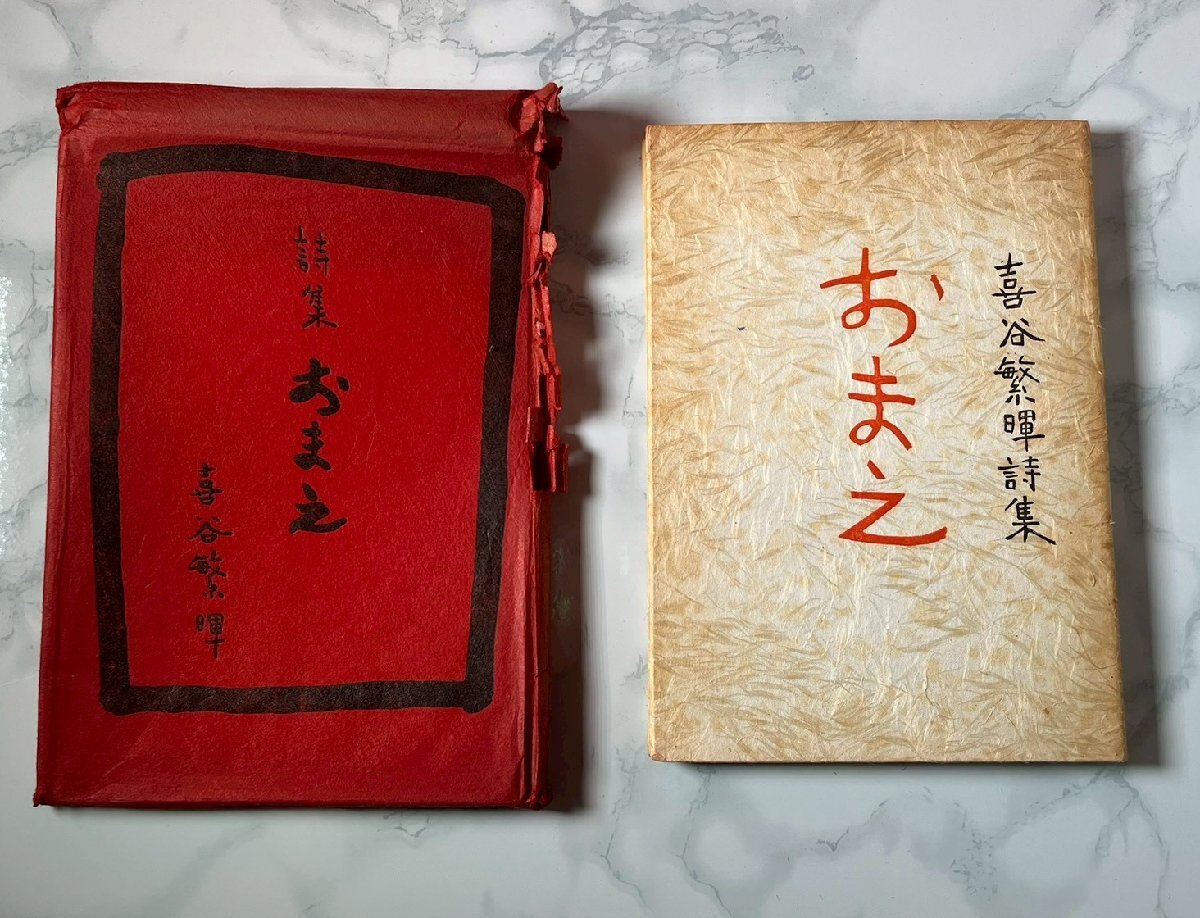 詩集 おまえ
喜谷繁暉
喜谷繁暉詩集
おまえ